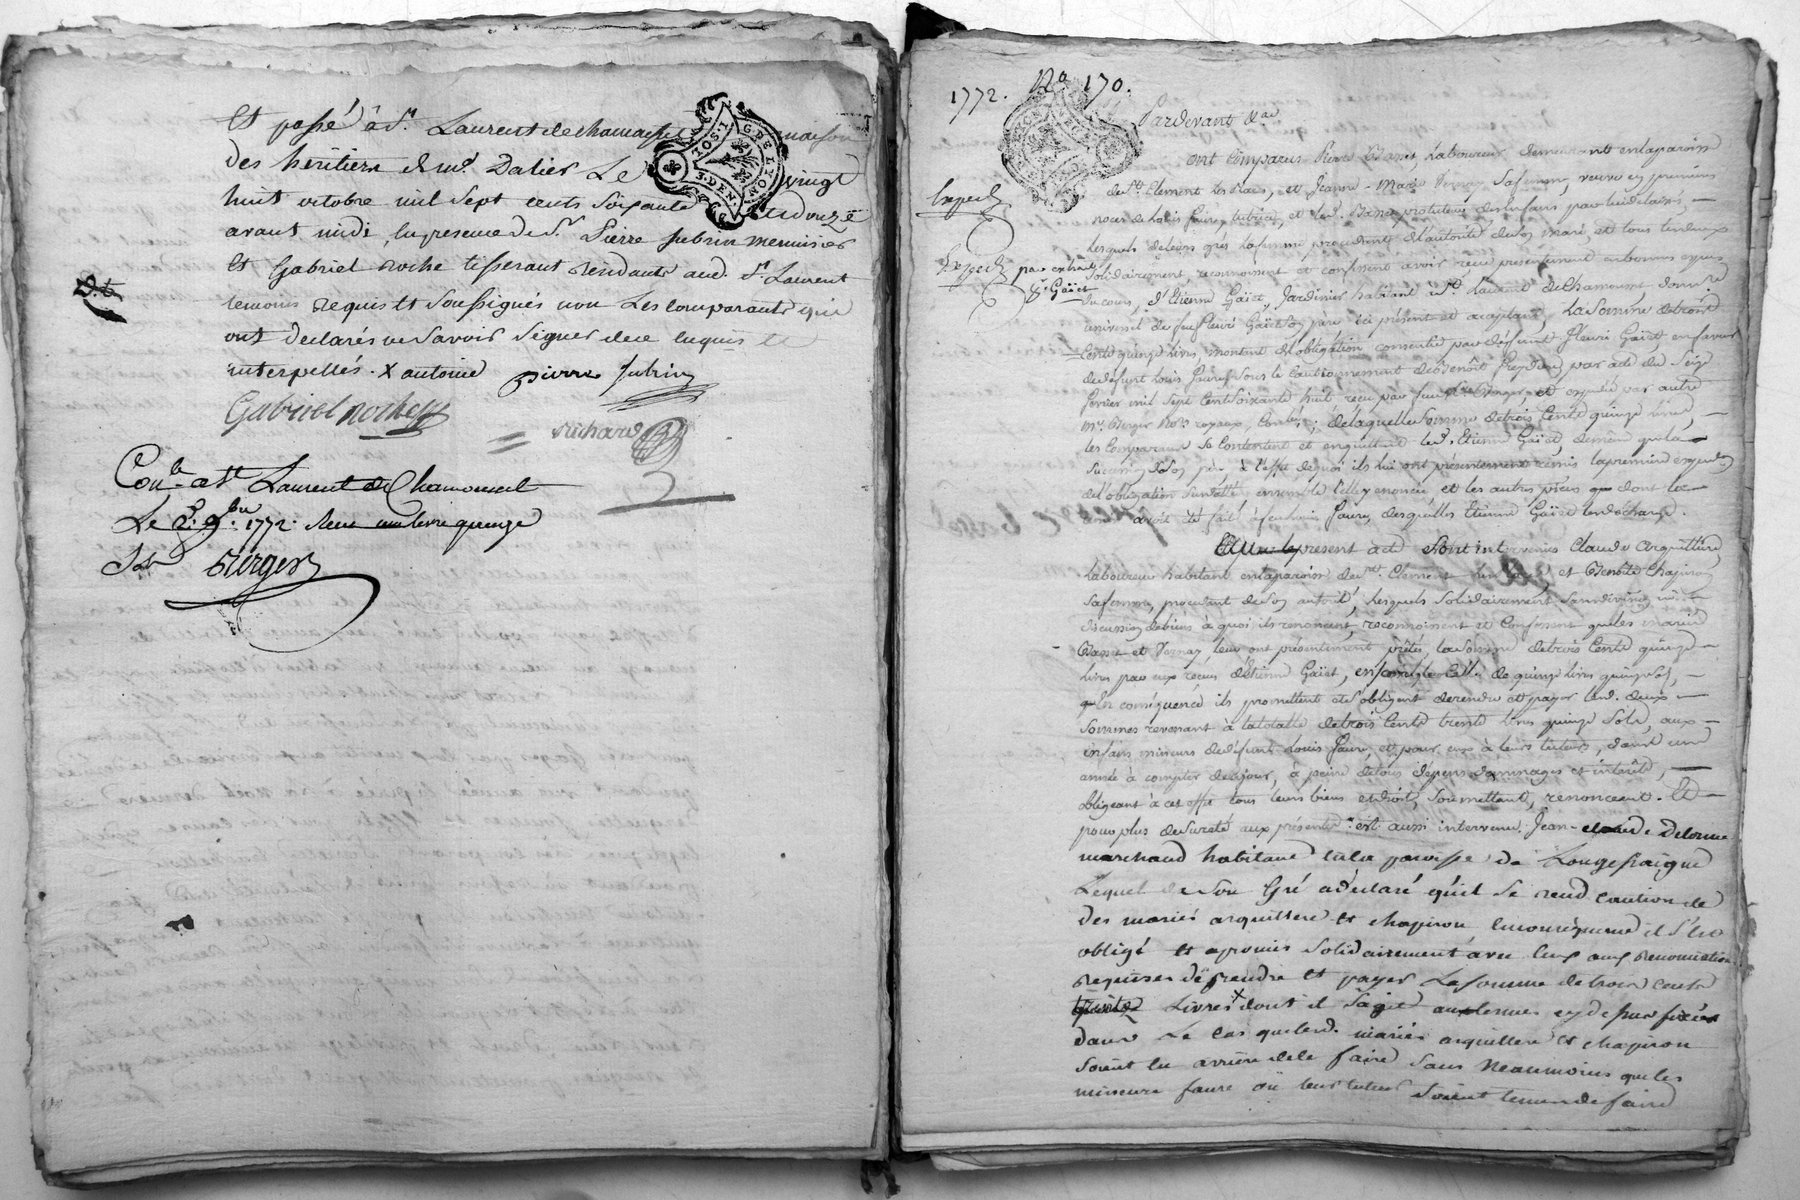 Et passé à St. Laurent de chamousset maison
des héritiers de Me. Dalier Le vingt
huit octobre mil sept cents soixante et douze
avant midi, en presence de Sr. Pierre Jubrin menuisier
Et Gabriel roche tisserant residants aud. St. Laurent
temoins requis Et Soussignés non Les comparants qui
ont declarés ne Savoir Signer de ce enquis et
interpellés. X antoine pierre Jubrin
Gabriel roche
richard
Con.le a St Laurent de Chamousset
Le 2e. 9bre. 1772. Reçu une livre quinze
Sols Berger
1772. No. 170.
Pardevant &a.
ont Comparus Pierre Basset Laboureur demeurant en la paroisse
de St. Clement les Places, et Jeanne-Marie Vernay Sa femme, veuve en premieres
noces de Louis Faure, tutrice, et led. Basset protuteur des Enfans
Lesquels de leurs grés La femme procedente de l'autorité de Son mari, et tous deux
Solidairement, reconnoissent et confessent avoir reçu présentement en bonnes especes
expédié
Expedié par extrait
à Gaiet
du cours, d'Etienne Gaiet, Jardinier habitant à St. Laurent de Chamousset, donataire
universel de feu Fleuri Gaiet Son père ici présent et acceptant, La Somme de trois
Cents quinze livres, montant de l'obligation consentie par défunt Fleuri Gaiet en faveur
de défunt Louis Faure, Sous le Cautionnement de Benoît par acte du Seize
fevrier mil Sept Cent Soixante huit reçu par feu Me. Berger, et expedié par autre
Me. Berger Nore. royaux, Contrôlé; de laquelle Somme de trois Cents quinze livres,
les Comparans Se Contentent et en quittent led. Etienne Gaiet, de même que la
Succession de Son père, à l'effet de quoi ils lui ont présentement remis la premiere expedition
de l'obligation Susdatée ensemble celle y enoncée, et les autres pièces dont la
avoit été fait à feu Louis Faure, desquelles Etienne Gaiet les decharge.
Et à le present acte Sont intervenus Claude Arquillere
Laboureur habitant en la paroisse de St. Clement les places, et Benoite Chapiron
Sa femme, procedant de Son autorité, Lesquels Solidairement Sans division ni
discussion de biens à quoi ils renoncent, reconnoissent et Confessent que les mariés
Basset et Vernay, leur ont présentement prêtés, la Somme de trois Cents quinze
livres par eux reçus d'Etienne Gaiet, ensemble celle de quinze livres quinze Sols,
qu'en conséquence ils promettent et S'obligent de rendre et payer lesd. deux
Sommes revenant à la totalle de trois Cents trente livres quinze Sols, aux
enfans mineurs de défunt Louis Faure, et pour eux à leurs tuteurs, dans une
année à compter de ce jour, à peine de tous dépens dommages et interêts,
obligeant à cet effet tous leurs biens et droits, Soumettant, renonceant. Et
pour plus de Sureté aux présentes est aussi intervenu Jean-claude Delorme
marchand habitant en la paroisse de Longessaigne
Lequel de Son Gré a déclaré qu'il Se rend caution de
des mariés arquillere et chapiron en consequence il S'est
obligé et a promis Solidairement avec Eux aux renonciations
requises de rendre et payer La Somme de trois cents
trente Livres X dont il S'agit aux termes cy dessus fixés
dans Le Cas que lesd. mariés arquillere et chapiron
Soient en arriere de le faire Sans Neanmoins que les
mineurs faure ou leurs tuteurs Soient tenus de faire